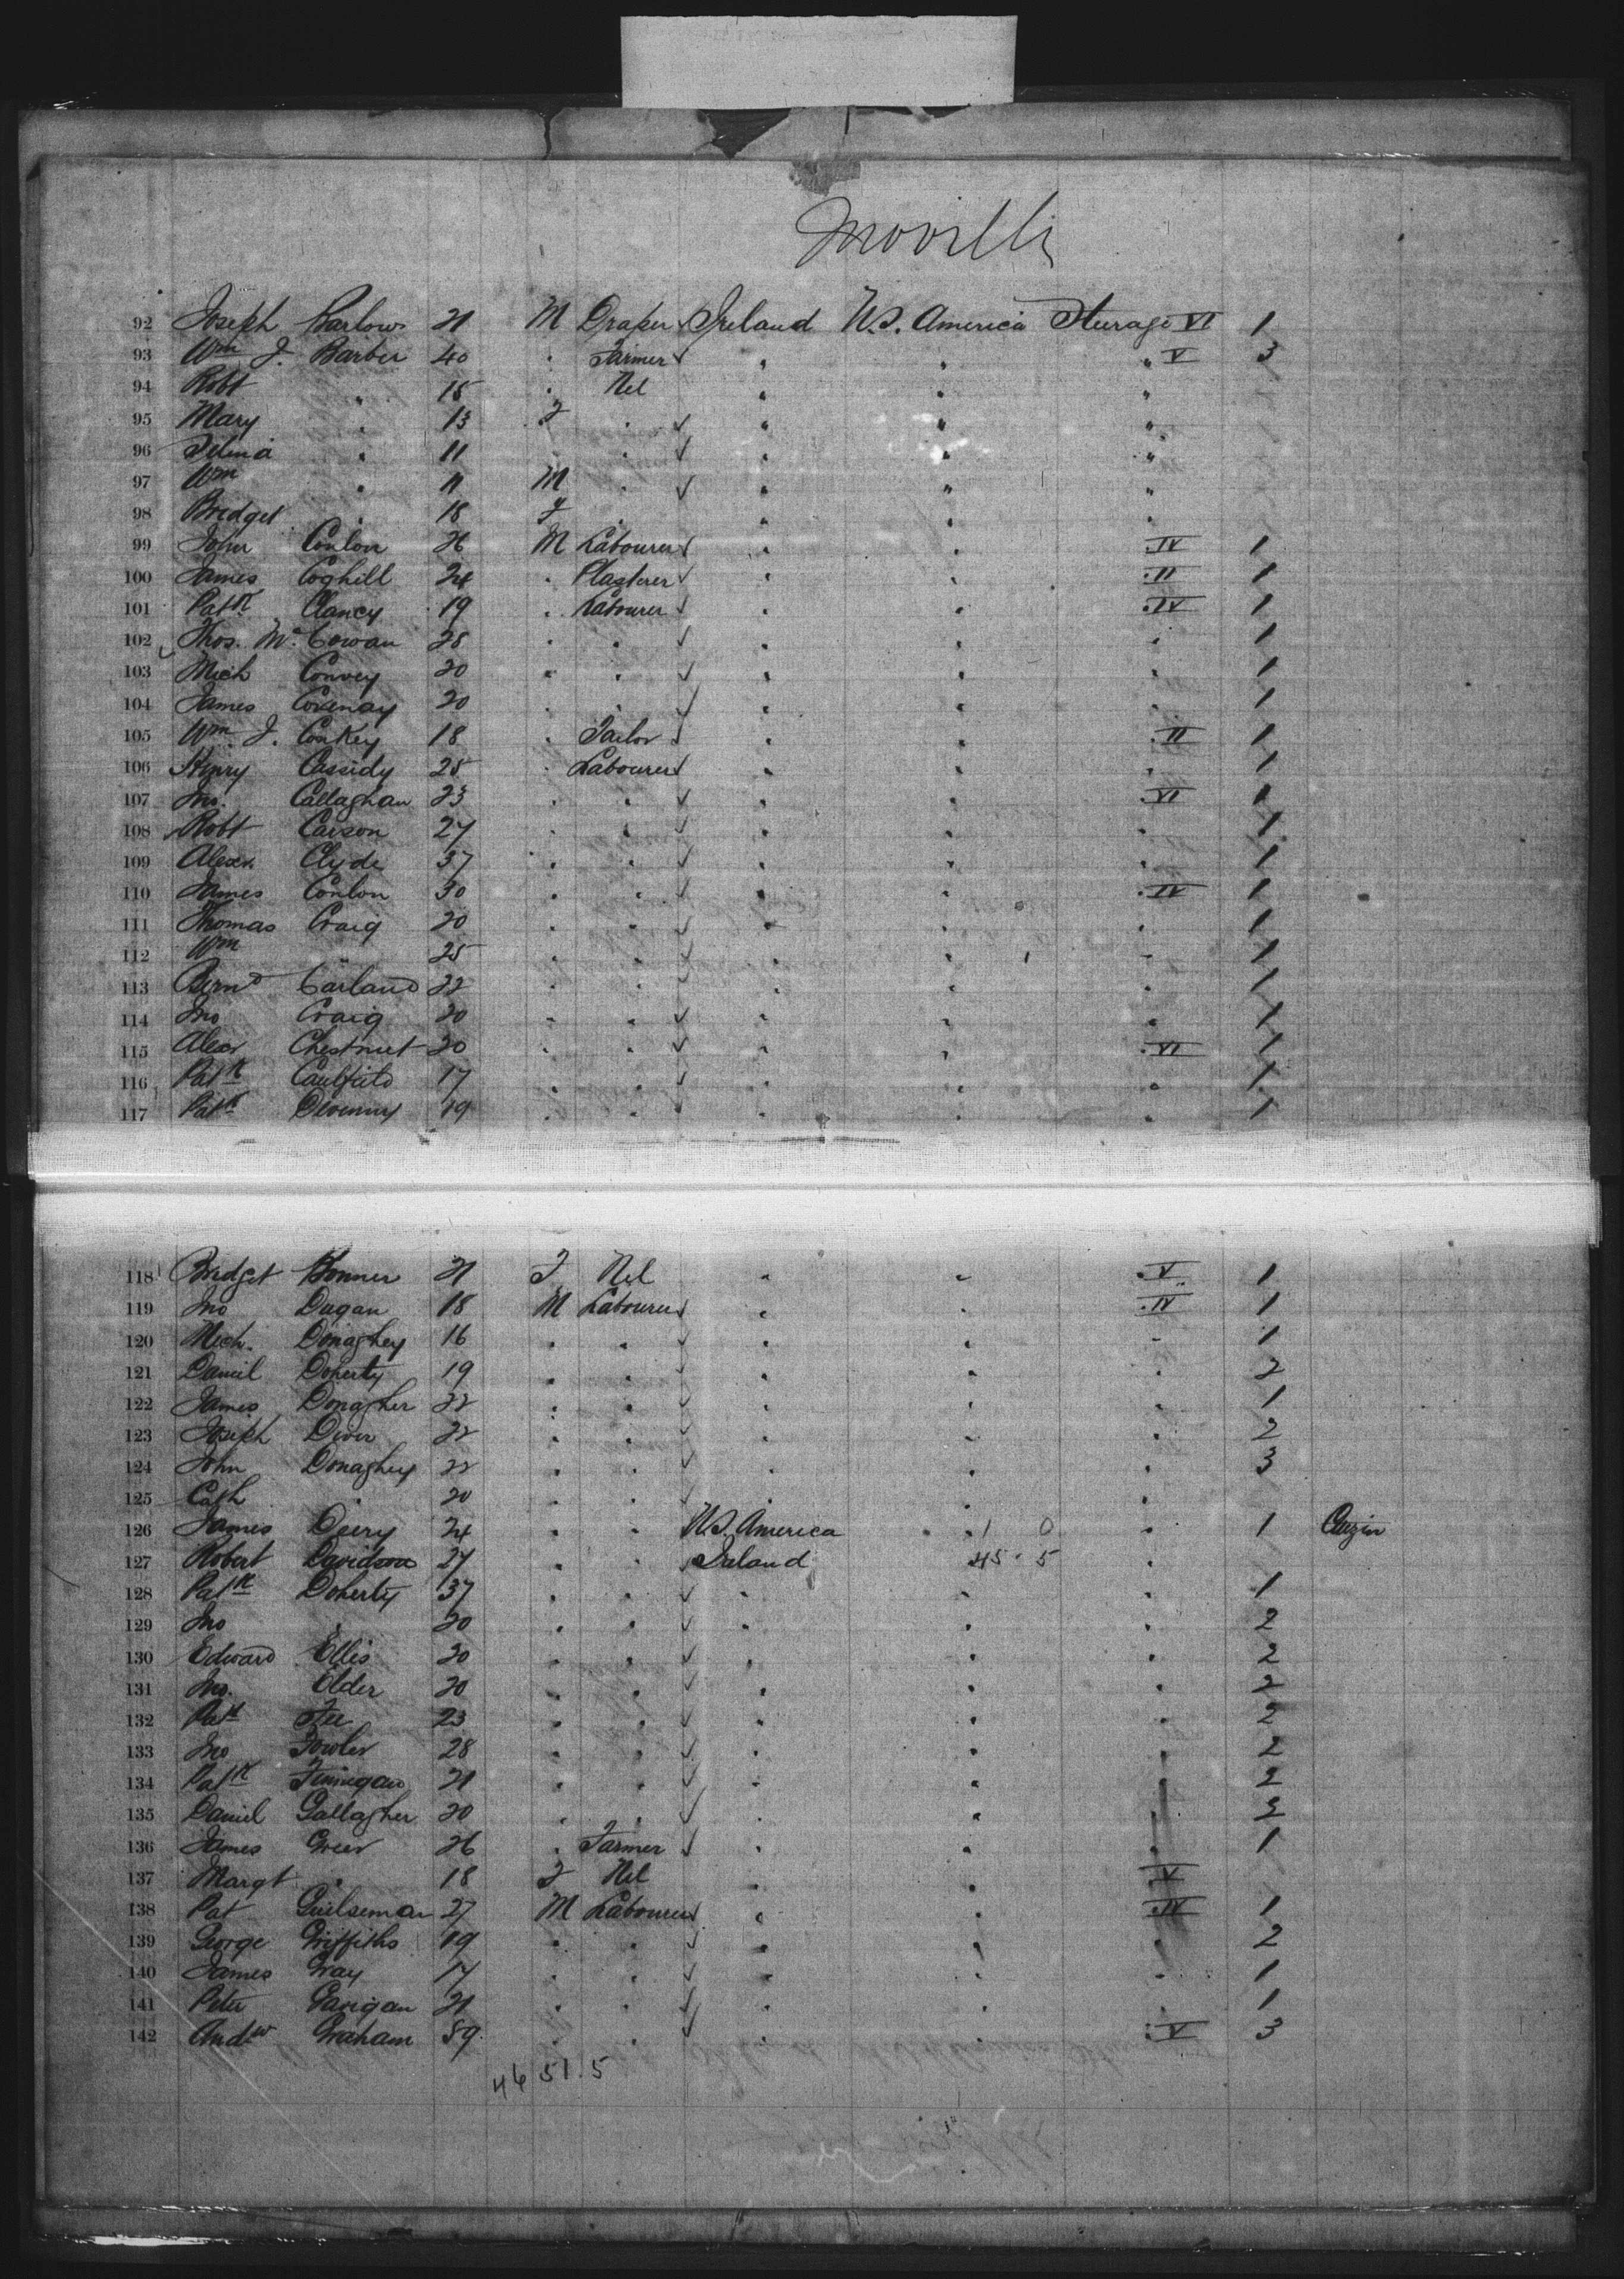 Moville
92 Joseph Barlow 21 M Draper ✓ Ireland U.S. America Steerage VI 1
93 Wm J. Barber 40 " Farmer ✓ " " " V 3
94 Robt " 15 " Nil " " "
95 Mary " 13 F " ✓ " " "
96 Selina " 11 " ✓ " " "
97 Wm " 11 M " ✓ " " "
98 Bridget " 18 F " " " "
99 John Conlon 26 M Labourer ✓ " " " IV 1
100 James Coghill 24 " Plasterer ✓ " " " II 1
101 Patk Clancy 19 " Labourer ✓ " " " IV 1
102 Thos. Mc Cowan 28 " " ✓ " " " 1
103 Mich Convey 20 " " ✓ " " " 1
104 James 20 " " ✓ " " " 1
105 Wm J. Conkey 18 " Tailor ✓ " " " II 1
106 Henry Cassidy 25 " Labourer ✓ " " " 1
107 Jno. Callaghan 23 " " ✓ " " " VI 1
108 Robt Carson 27 " " ✓ " " " 1
109 Alexr. Clyde 37 " " ✓ " " " 1
110 James Conlon 30 " " ✓ " " " IV 1
111 Thomas Craig 20 " " ✓ " " " 1
112 Wm " 25 " " ✓ " " " 1
113 Bernd Carland 22 " " ✓ " " " 1
114 Jno Craig 20 " " ✓ " " " 1
115 Alexr Chestnut 20 " " ✓ " " " VI 1
116 Patk Caulfield 17 " " ✓ " " " 1
117 Patk Devenny 19 " " ✓ " " " 1
118 Bridget Bonner 21 F Nil " " " V 1
119 Jno Dugan 18 M Labourer ✓ " " " IV 1
120 Mich. Donaghey 16 " " ✓ " " " 1
121 Daniel Doherty 19 " " ✓ " " " 2
122 James Donagher 22 " " ✓ " " " 1
123 Joseph Diver 22 " " ✓ " " " 2
124 John Donaghey 22 " " ✓ " " " 3
125 Cath " 20 " " ✓ " " "
126 James Deery 24 " " U.S. America " " 1 0 " 1
127 Robert Davidson 27 " " ✓ Ireland 45 " 5 "
128 Patk Doherty 37 " " ✓ " " " 1
129 Jno " 20 " " ✓ " " " 2
130 Edward Ellis 20 " " ✓ " " " 2
131 Jno. Elder 20 " " ✓ " " " 2
132 Patk Fee 23 " " ✓ " " " 2
133 Jno Fowler 28 " " ✓ " " " 2
134 Patk Finnegan 21 " " ✓ " " " 2
135 Daniel Gallagher 20 " " ✓ " " " 2
136 James Greer 26 " Farmer ✓ " " " 1
137 Margt " 18 F Nil " " V
138 Pat 27 M Labourer ✓ " " " IV 1
139 George Griffiths 19 " " ✓ " " " 2
140 James Gray 17 " " ✓ " " " 1
141 Peter Garigan 21 " " ✓ " " " 1
142 Andw Graham 59 " " ✓ " " " V 3
46 51.5